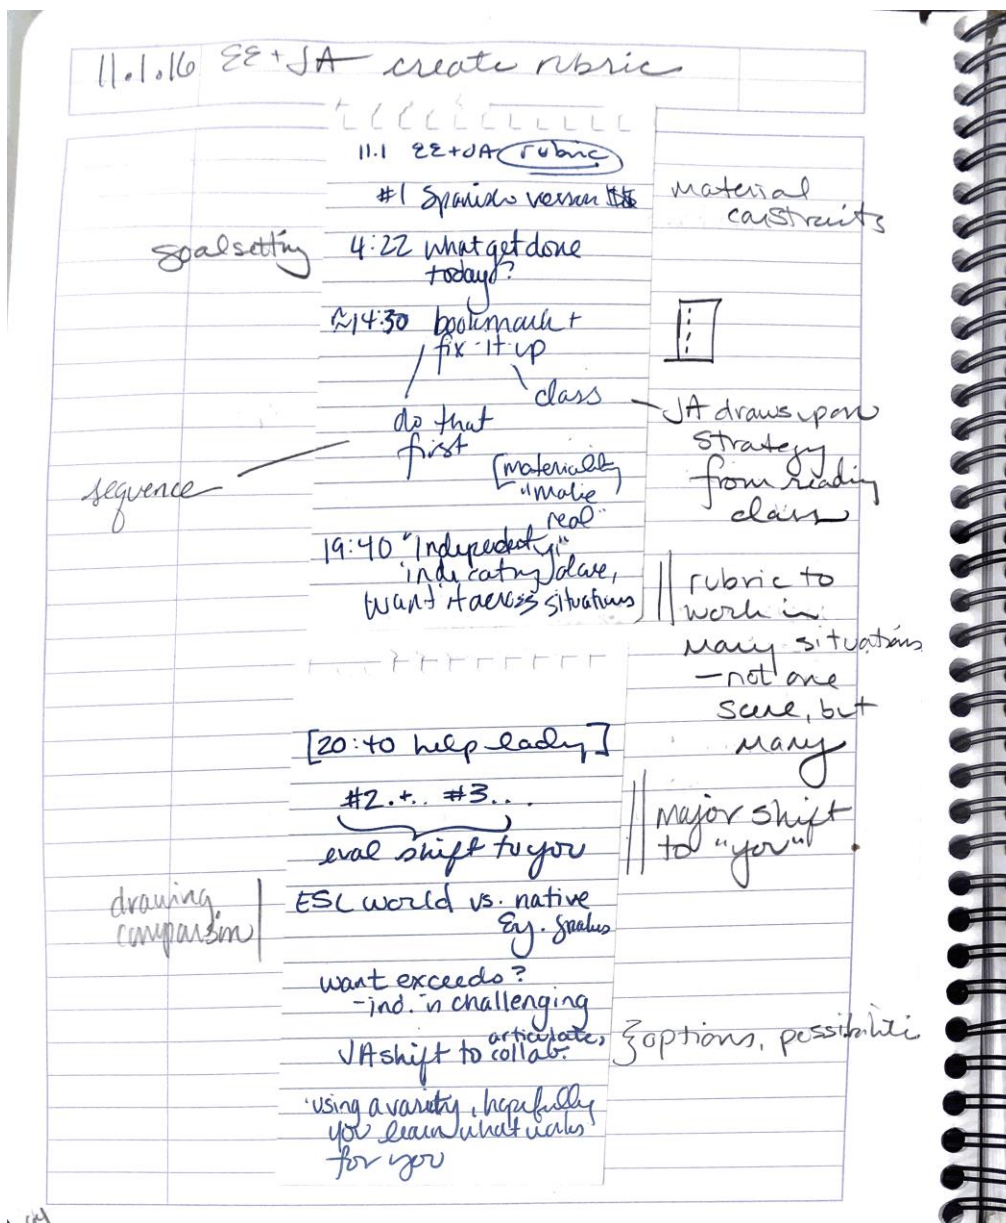 11.1.16 EE+JA create rubric
11.1 EE+JA rubric
#1 Spanish version
material
constraits
goal setting
4:22 what get done
today?
≈14:30 bookmark +
fix-it-up
class
do that
first
JA draws upon
strategy
from reading
class
sequence
[materially
"make
real"
19:40 "Independently"
indicating place,
want it across situations
rubric to
work in
many situations
– not one
scene, but
many
[20:40 help lady]
#2.+.. #3...
eval shift to you
major shift
to "you"
drawing
comparison
ESL world vs. native
want exceeds?
-ind. in challenging
JA shift to articulate, collab.
options, possibiliti
'using a variety, hopefully
you learn what works
for you